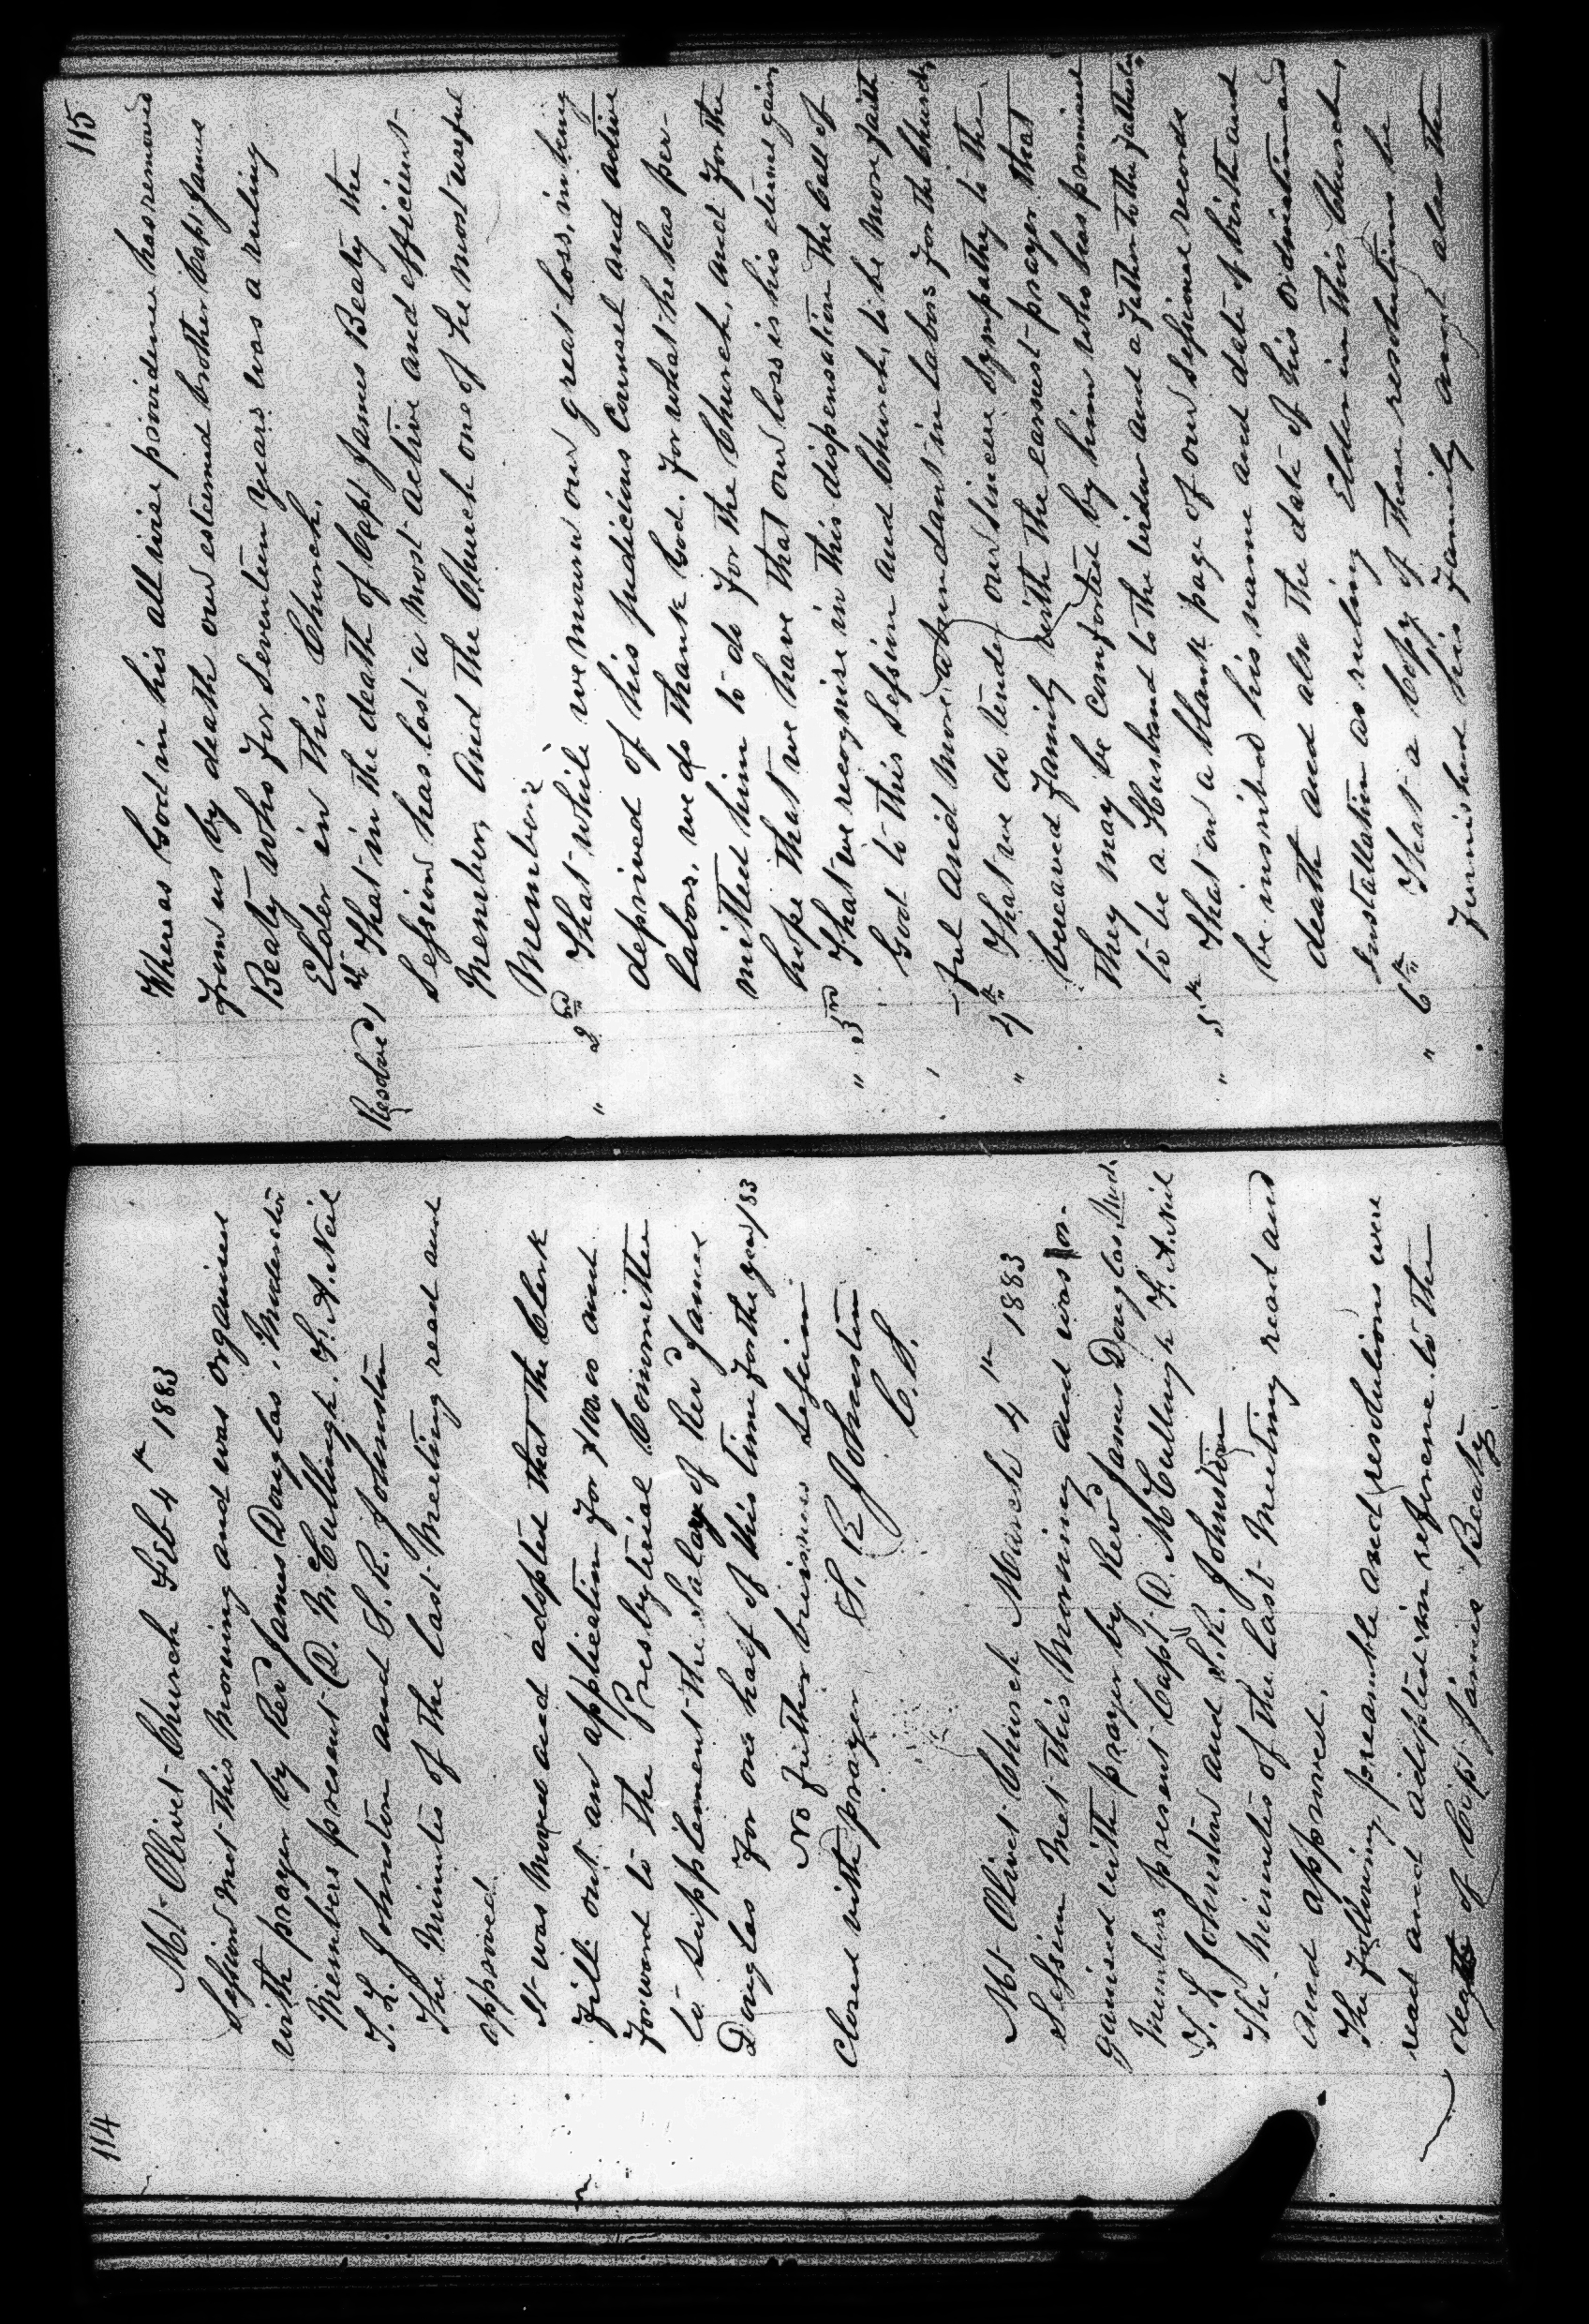 114
Mt Olivet Church Feb 4th 1883
Session met this morning and was organised
with prayer by Revd James Douglas, Moderator
Members present D. McCullough. F. A. Neil
T. L. Johnston and S. R. Johnston
The Minutes of the last Meeting read and
approved.
It was moved and adopted that the Clerk
fill out an application for $100.00 and
forward to the Presbyterial Committee
to supplement the Salary of Revd James
Douglas for one half of this time for the year/83
No futher business Session
closed with prayer S. R. Johnston
C. S.
Mt Olivet Church March 4th 1883
Session Met this Morning and was or-
ganised with prayer by Revd James Douglas, Mod.
Members present Capt D. McCullough F. A. Neil
T. L Johnston and S. R. Johnston
The Minutes of the last Meeting read and
and approved.
The following preamble and resolutions were
read and adopted in reference to the
death of Capt James Beaty.
115
Whereas God in his all wise providence has removed
from us by death our esteemed brother Capt James
Beaty who for seventeen years was a ruling
Elder in this Church.
Resolved 1st That in the death of Capt James Beaty the
Session has lost a most active and efficient
Member, and the Church one of the most useful
Members
" 2nd That while we mourn our great loss, in being
deprived of his judicious Counsel and active
labors. we do thank God. for what he has per-
mitted him to do for the Church, and for the
hope that we have that our loss is his eternal gain
" 3rd That we recognise in this dispensation the Call of
God to this Session and Church, to be more faith
ful and more abundant in labors for the Church,
" 4th That we do tender our sincere sympathy to the
bereaved family with the earnest prayer that
they may be comforted by him who has promised
to be a Husband to the widow and a father to the fatherless
" 5th That on a blank page of our session records
be inscribed his name and date of birth and
death and also the date of his ordination and
Installation as ruling Elder in this Church,
" 6th That a copy of these resolutions be
furnished his family and also the